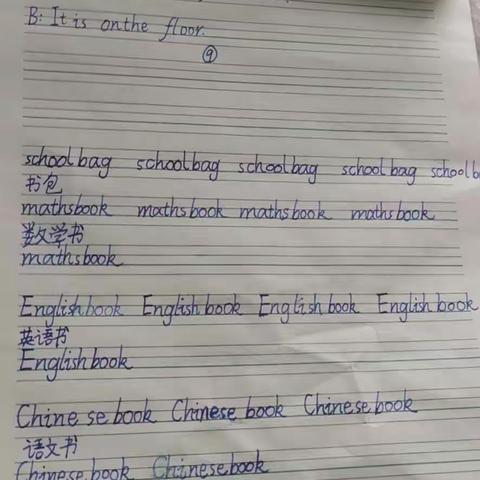 B: It is on the floor.
⑨
school bag school bag school bag school bag school b
书包
maths book maths book maths book maths book
数学书
maths book
English book English book English book English book
英语书
English book
Chinese book Chinese book Chinese book
语文书
Chinese book Chinese book